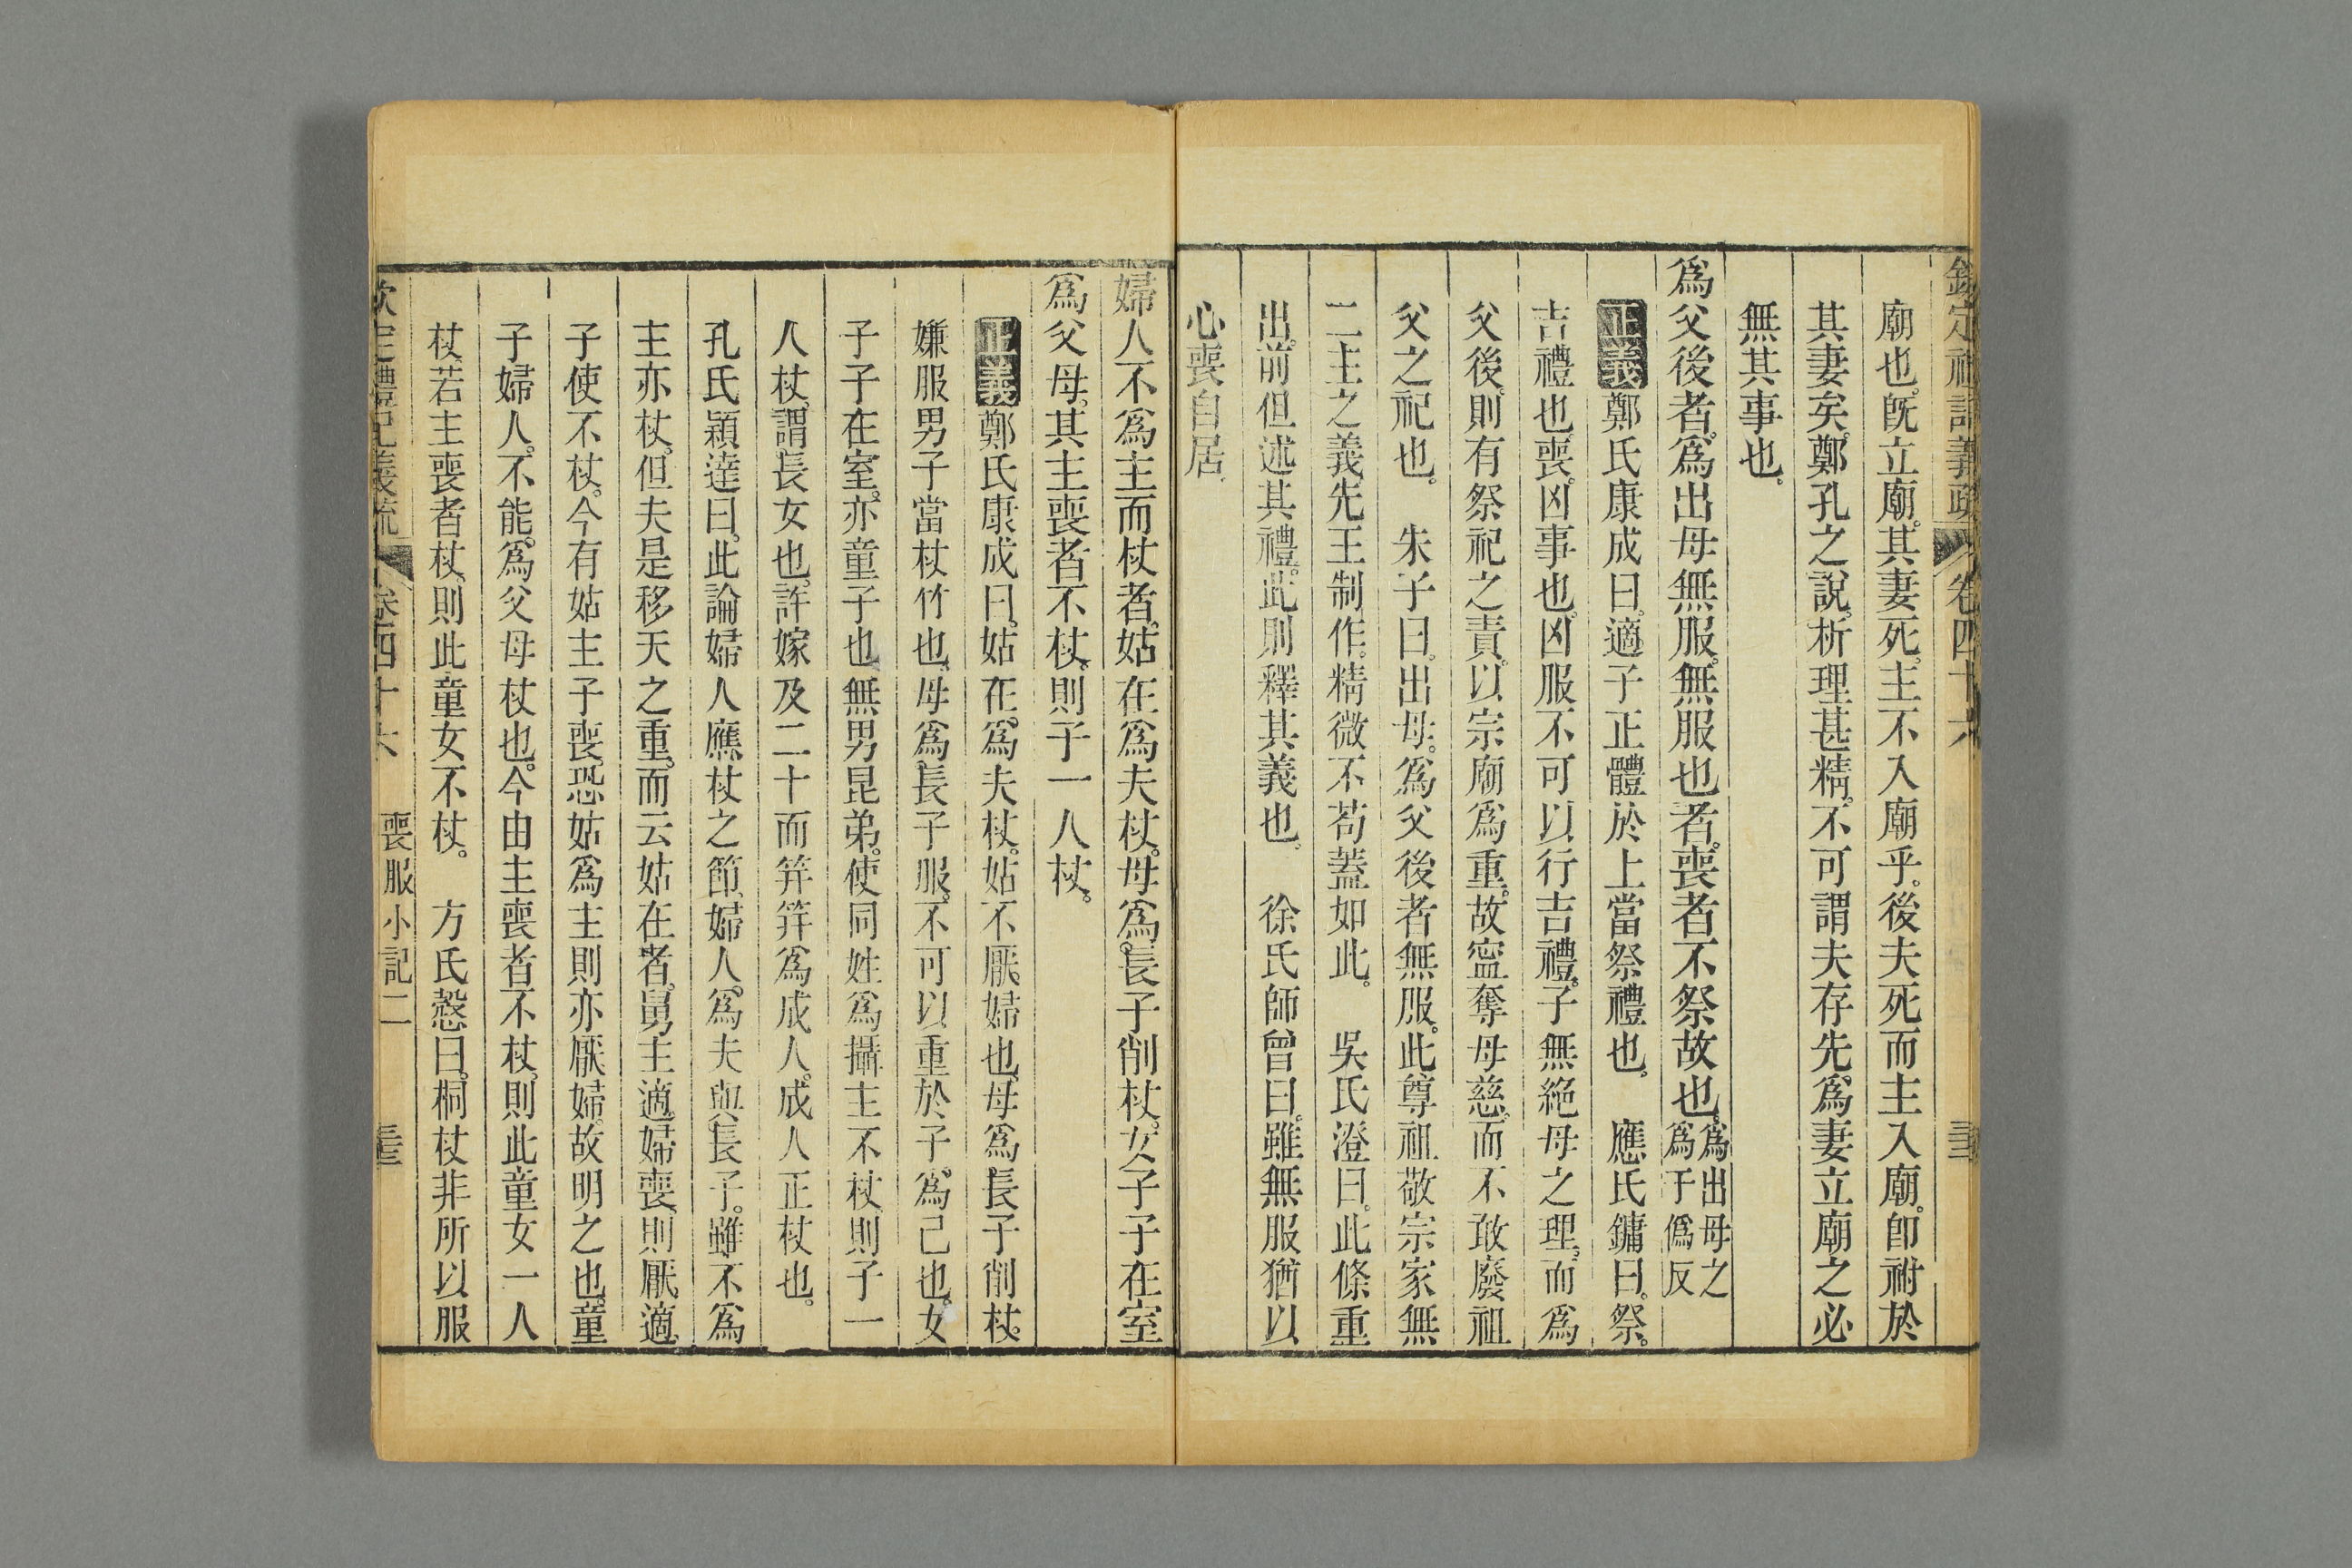 欽定禮記義疏 卷四十六
廟也。旣立廟。其妻死。主不入廟乎。後夫死而主入廟。卽祔於
其妻矣。鄭孔之說。析理甚精。不可謂夫存先爲妻立廟之必
無其事也。
爲父後者。爲出母無服。無服也者。喪者不祭故也。爲出母之爲于僞反
正義鄭氏康成曰。適子正體於上當祭禮也。 應氏鏞曰。祭。
吉禮也。喪。凶事也。凶服不可以行吉禮。子無絶母之理。而爲
父後。則有祭祀之責。以宗廟爲重。故寧奪母慈。而不敢廢祖
父之祀也。 朱子曰。出母。爲父後者無服。此尊祖敬宗家無
二主之義。先王制作。精微不苟蓋如此。 吳氏澄曰。此條重
出。前但述其禮。此則釋其義也。 徐氏師曾曰。雖無服猶以
心喪自居。
婦人不爲主而杖者。姑在爲夫杖。母爲長子削杖。女子子在室
爲父母。其主喪者不杖。則子一人杖。
正義鄭氏康成曰。姑在。爲夫杖。姑不厭婦也。母爲長子削杖。
嫌服男子當杖竹也。母爲長子服。不可以重於子爲己也。女
子子在室。亦童子也。無男昆弟。使同姓爲攝主不杖。則子一
人杖。謂長女也。許嫁及二十而笄。笄爲成人。成人正杖也。
孔氏穎達曰。此論婦人應杖之節。婦人爲夫與長子。雖不爲
主亦杖。但夫是移天之重。而云姑在者。舅主適婦喪。則厭適
子使不杖。今有姑主子喪。恐姑爲主則亦厭婦。故明之也。童
子婦人。不能爲父母杖也。今由主喪者不杖。則此童女一人
杖。若主喪者杖。則此童女不杖。 方氏慤曰。桐杖非所以服
欽定禮記義疏 卷四十六 喪服小記二